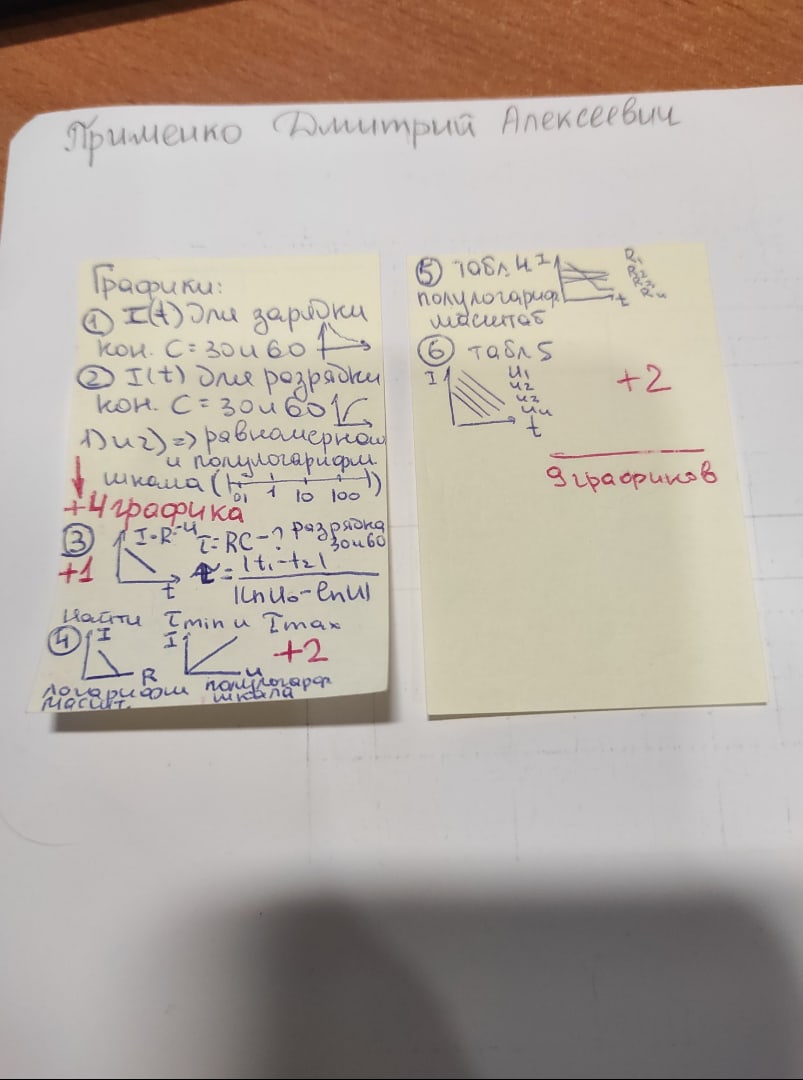 Применко Дмитрий Алексеевич
Графики:
① I(t) для зарядки
кон. C = 30 и 60
② I(t) для разрядки
кон. C = 30 и 60
1) и 2) => равномерной
и полулогарифм.
шкала ( 0,1 1 10 100 )
+4 графика
③ I = R⁻ᵘ τ = RC - ? разрядка
30 и 60
+1 t τ = |t₁ - t₂|
|ln U₀ - ln U|
Найти τmin и τmax
④ I I +2
R u
логарифм полулогарф
масшт. шкала
⑤ табл 4 I R₁
R₂
R₃
R₄
полулогариф t
масштаб
⑥ табл 5
I u₁
u₂
u₃
u₄
t
+2
9 графиков